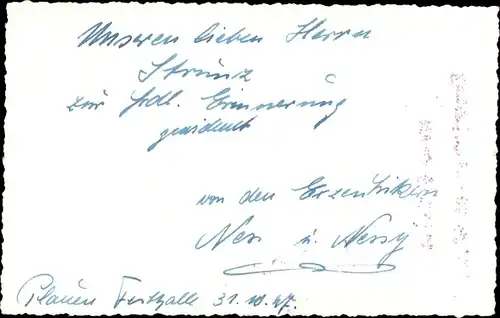 Unseren lieben Herrn
Strunz
zur frdl. Erinnerung
gewidmet
von den Exzentrikern
Nex u. Nessy
Plauen Festhalle 31.10.47.